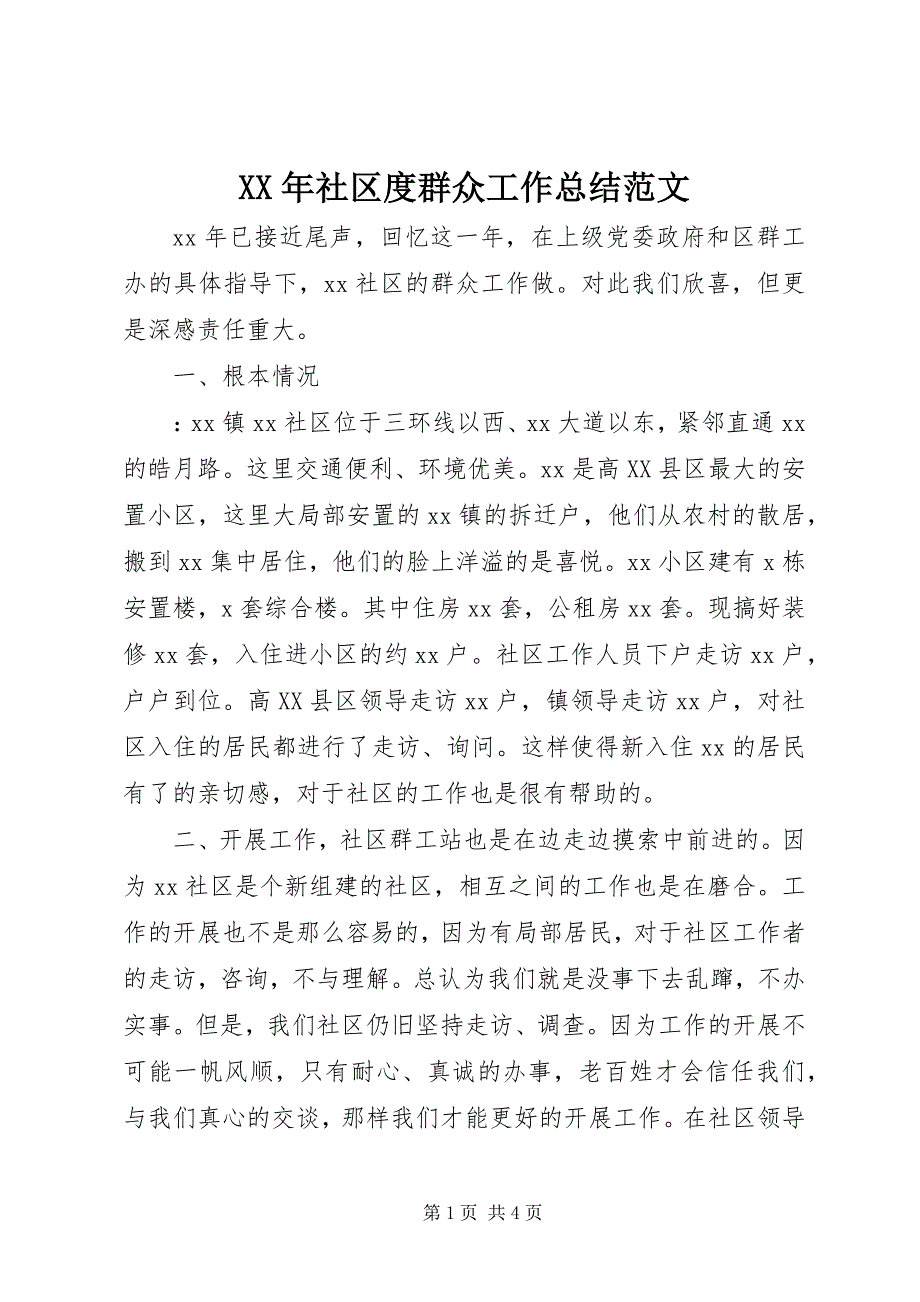 XX 年社区度群众工作总结范文
xx 年已接近尾声，回忆这一年，在上级党委政府和区群工
办的具体指导下，xx 社区的群众工作做。对此我们欣喜，但更
是深感责任重大。
一、根本情况
：xx 镇 xx 社区位于三环线以西、xx 大道以东，紧邻直通 xx
的皓月路。这里交通便利、环境优美。xx 是高 XX 县区最大的安
置小区，这里大局部安置的 xx 镇的拆迁户，他们从农村的散居，
搬到 xx 集中居住，他们的脸上洋溢的是喜悦。xx 小区建有 x 栋
安置楼，x 套综合楼。其中住房 xx 套，公租房 xx 套。现搞好装
修 xx 套，入住进小区的约 xx 户。社区工作人员下户走访 xx 户，
户户到位。高 XX 县区领导走访 xx 户，镇领导走访 xx 户，对社
区入住的居民都进行了走访、询问。这样使得新入住 xx 的居民
有了的亲切感，对于社区的工作也是很有帮助的。
二、开展工作，社区群工站也是在边走边摸索中前进的。因
为 xx 社区是个新组建的社区，相互之间的工作也是在磨合。工
作的开展也不是那么容易的，因为有局部居民，对于社区工作者
的走访，咨询，不与理解。总认为我们就是没事下去乱蹿，不办
实事。但是，我们社区仍旧坚持走访、调查。因为工作的开展不
可能一帆风顺，只有耐心、真诚的办事，老百姓才会信任我们，
与我们真心的交谈，那样我们才能更好的开展工作。在社区领导
第 1 页 共 4 页